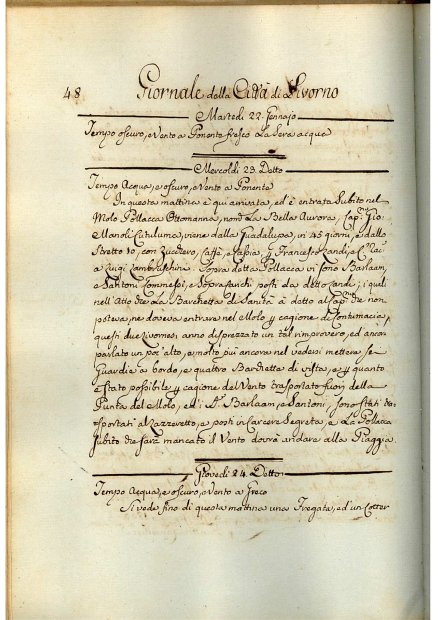 48 Giornale della Città di Livorno
Martedì 22. Gennajo
Tempo oscuro, e Vento a Ponente fresco La Sera acqua
Mercoldì 23 Detto
Tempo Acqua, e oscuro, e Vento a Ponente
In questa mattina è qui arrivata, ed è entrata Subito nel
Molo Pollacca Ottomanna, nom.ta La Bella Aurora, Cap.no Gio:
Manoli Cutuluma, viene dalla Guadalupa, in 45 giorni, e dallo
Stretto 10, con Zucchero, Caffè, e Cassia, p Francesco Zandj,
a Luigi Zambruschini. Sopra detta Pollacca vi sono Barlaam,
e Santoni Commessi, e Sopracarichi posti da detto Zandj; i quali
nell'Atto che La Barchetta di Sanità à detto al Cap.no che non
poteva, ne doveva entrare nel Molo p cagione di Contumacia,
questi due Livornesi anno disprezzato un tal rimprovero, ed ancor
parlato un poi alto, e molto più ancora nel vedersi mettere Le
Guardie a bordo, e quattro Barchette di vista, e p quanto
è Stato possibile p cagione del Vento trasportato fuori della
Punta del Molo, ed i S.ri Barlaam, e Santoni, sono Stati tra-
sportati al Lazzeretto, e posti in Carcere Segreta, e La Pollacca
subito che sarà mancato il Vento dovrà andare alla Piaggia.
Giovedì 24 Detto
Tempo Acqua, e oscuro, e Vento a Greco
Si vede fino di questa mattina una Fregata, ed un Cotter